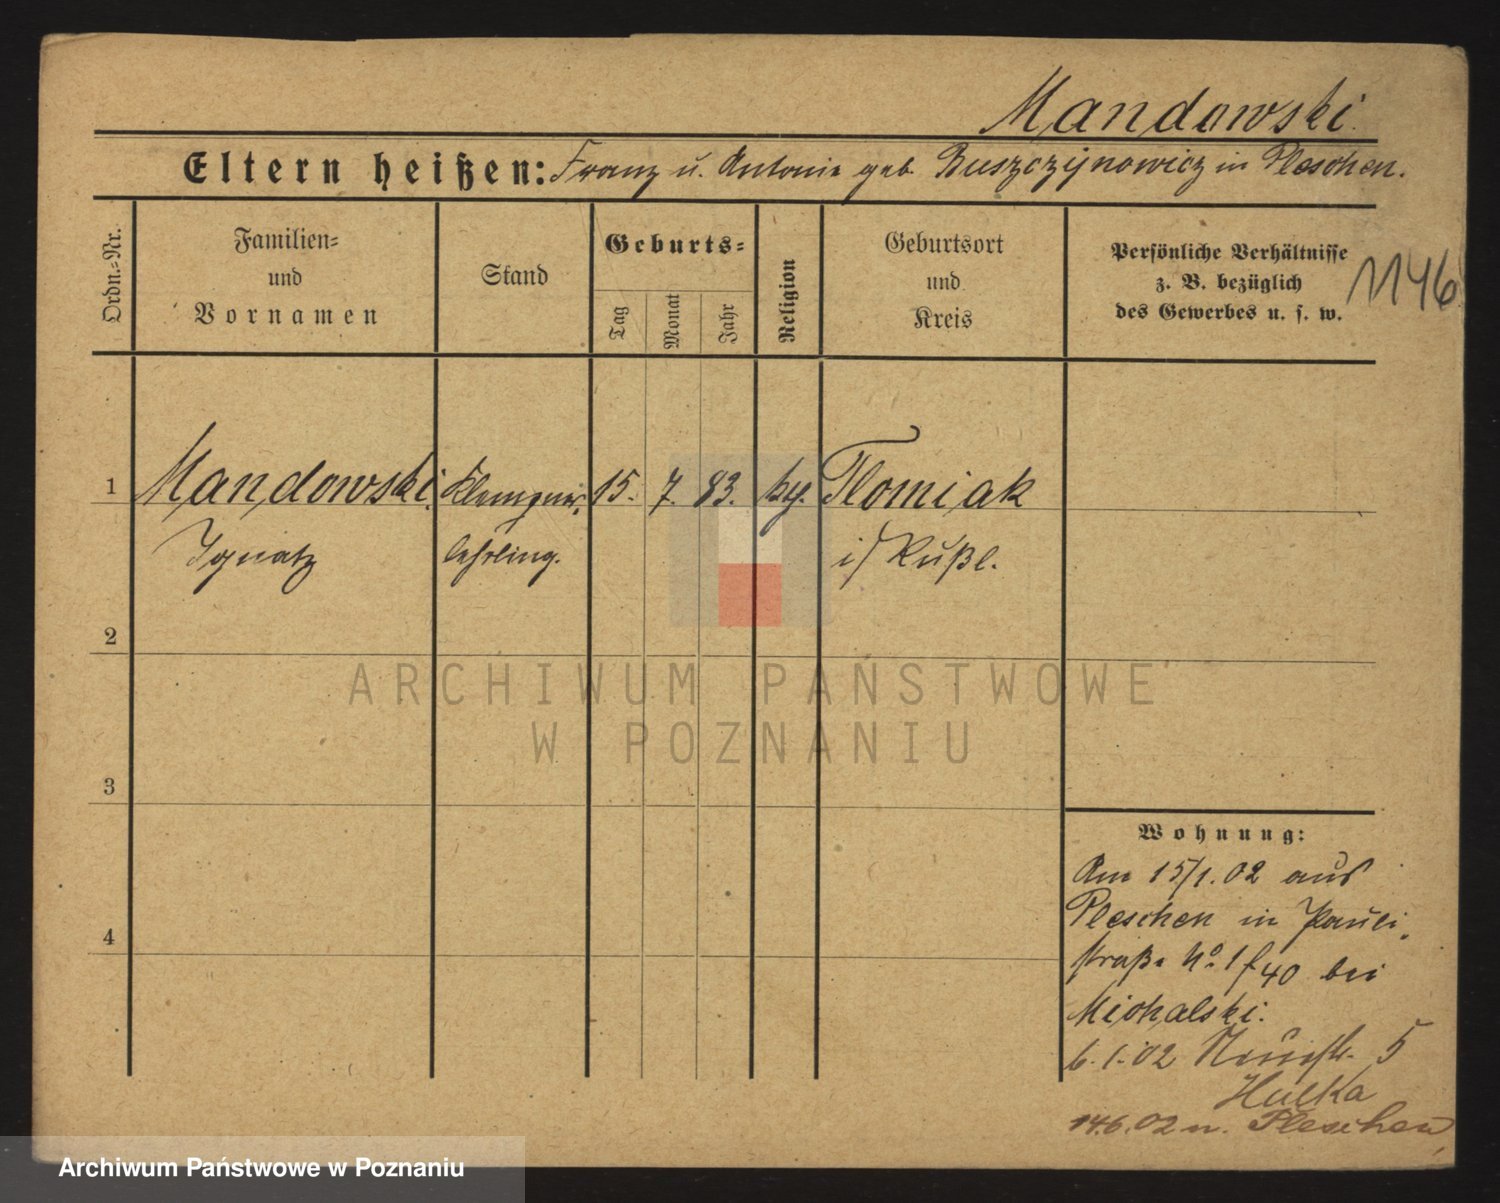 Mandowski.
Eltern heißen: Franz u. Antonie geb. Buszczynowicz in Pleschen.
Ordn.-Nr.
Familien-
und
Vornamen
Stand
Geburts-
Tag
Monat
Jahr
Religion
Geburtsort
und
Kreis
Persönliche Verhältnisse
z. B. bezüglich
des Gewerbes u. s. w.
1146
1
Mandowski. Klempner. 15. 7. 83. Tlomiak
Ignatz lehrling. i/ Rußl.
2
3
4
Wohnung:
Am 15/1.02 aus
Pleschen in Pauli
straße No. 1 40 bei
Michalski.
6.1.02 5
Hulka
14.6.02 n. Pleschen
ARCHIWUM PAŃSTWOWE
W POZNANIU
Archiwum Państwowe w Poznaniu